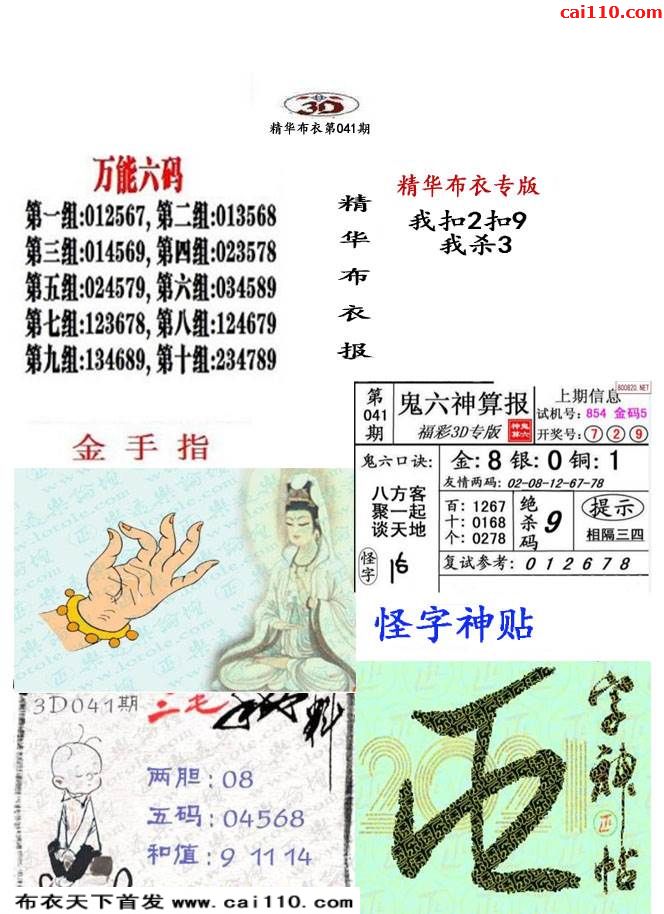 cai110.com
3D
精华布衣第041期
万能六码
第一组:012567, 第二组:013568
第三组:014569, 第四组:023578
第五组:024579, 第六组:034589
第七组:123678, 第八组:124679
第九组:134689, 第十组:234789
精华布衣报
精华布衣专版
我扣2扣9
我杀3
金手指
第041期
鬼六神算报
福彩3D专版
神鬼算六
800820.NET
上期信息
试机号: 854 金码5
开奖号: 7 2 9
鬼六口诀:
八方客
聚一起
谈天地
怪字
金: 8 银: 0 铜: 1
友情两码: 02-08-12-67-78
百: 1267
十: 0168
个: 0278
绝杀码
9
提示
相隔三四
复试参考: 0 1 2 6 7 8
怪字神贴
3D041期
两胆: 08
五码: 04568
和值: 9 11 14
2021
字神帖
正
布衣天下首发 www.cai110.com